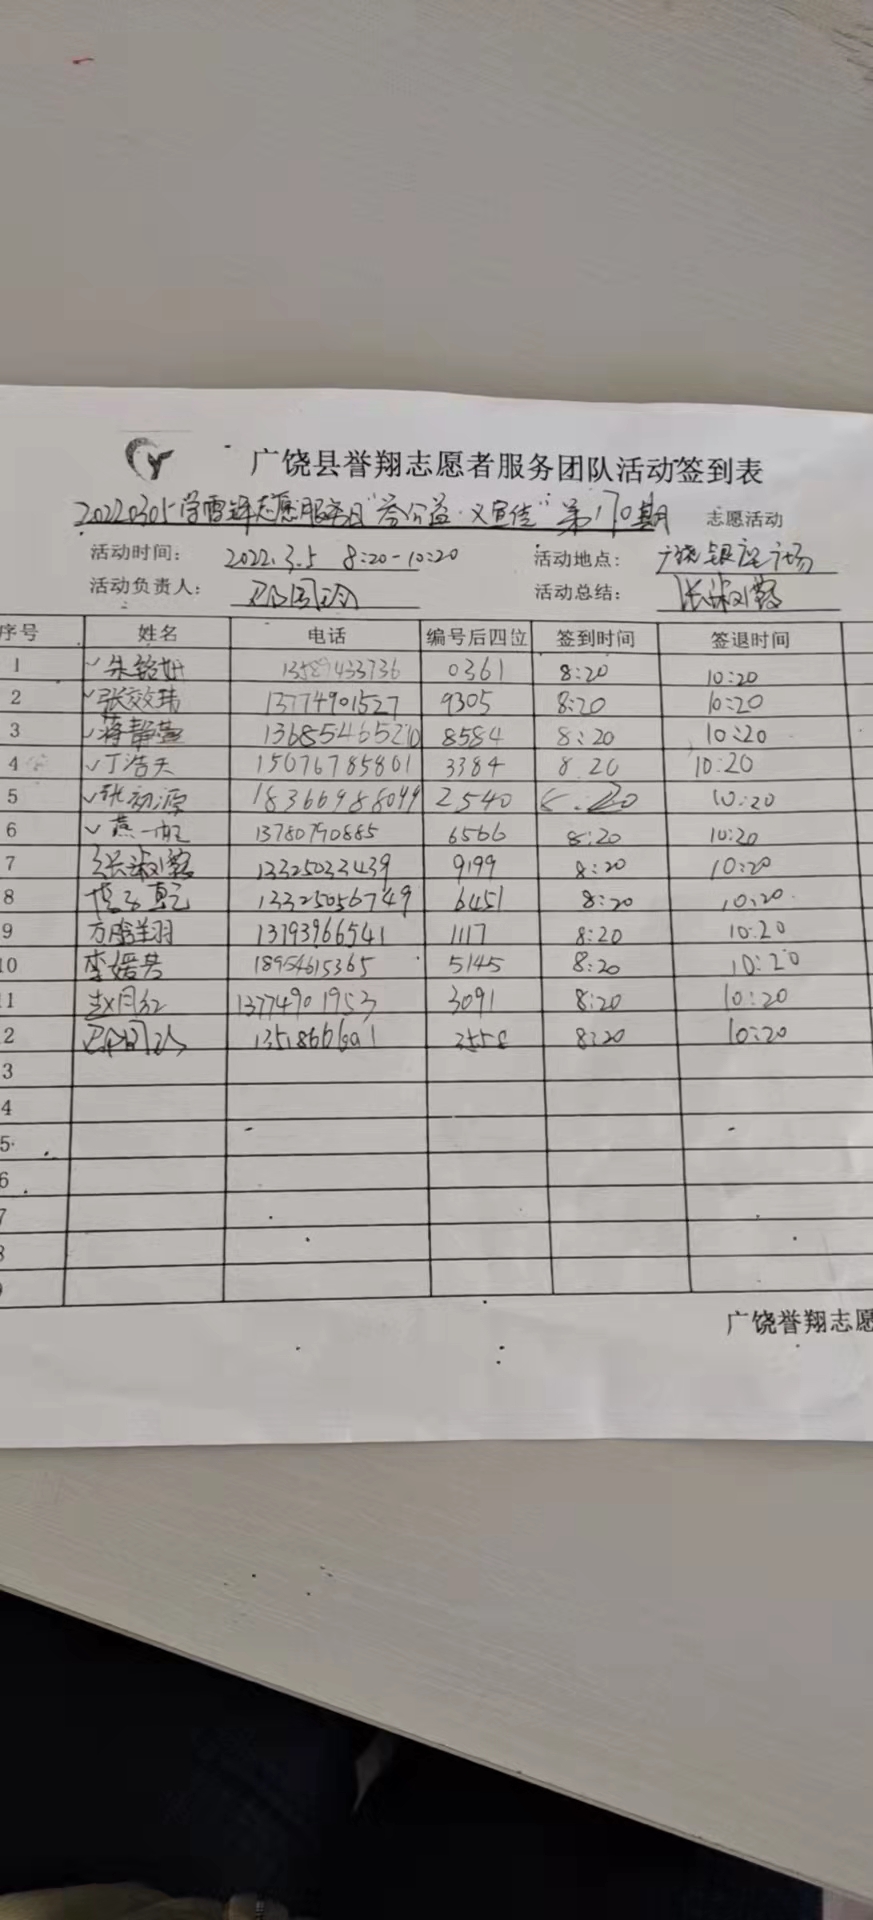 广饶县誉翔志愿者服务团队活动签到表
20220305学雷锋志愿服务日"誉公益·义宣传"第170期 志愿活动
活动时间: 2022.3.5 8:20-10:20 活动地点: 广饶银座广场
活动负责人: 活动总结: 张淑勤
序号 姓名 电话 编号后四位 签到时间 签退时间
1 ✓朱铭妍 13589433736 0361 8:20 10:20
2 ✓张效玮 13774901527 9305 8:20 10:20
3 ✓蒋静萱 13685465210 8584 8:20 10:20
4 ✓丁浩天 15076785801 3384 8 20 10:20
5 ✓张初源 18366988099 2540 10:20
6 ✓燕一帆 13780790885 6566 8:20 10:20
7 张淑勤 13325033439 9199 8:20 10:20
8 13325056749 6451 8:20 10:20
9 万腾翔羽 13793966541 1117 8:20 10:20
10 李媛芳 18954615365 5145 8:20 10:20
1 赵月红 13774901953 3091 8:20 10:20
2 8:20 10:20
3
4
5
6
7
8
9
广饶誉翔志愿